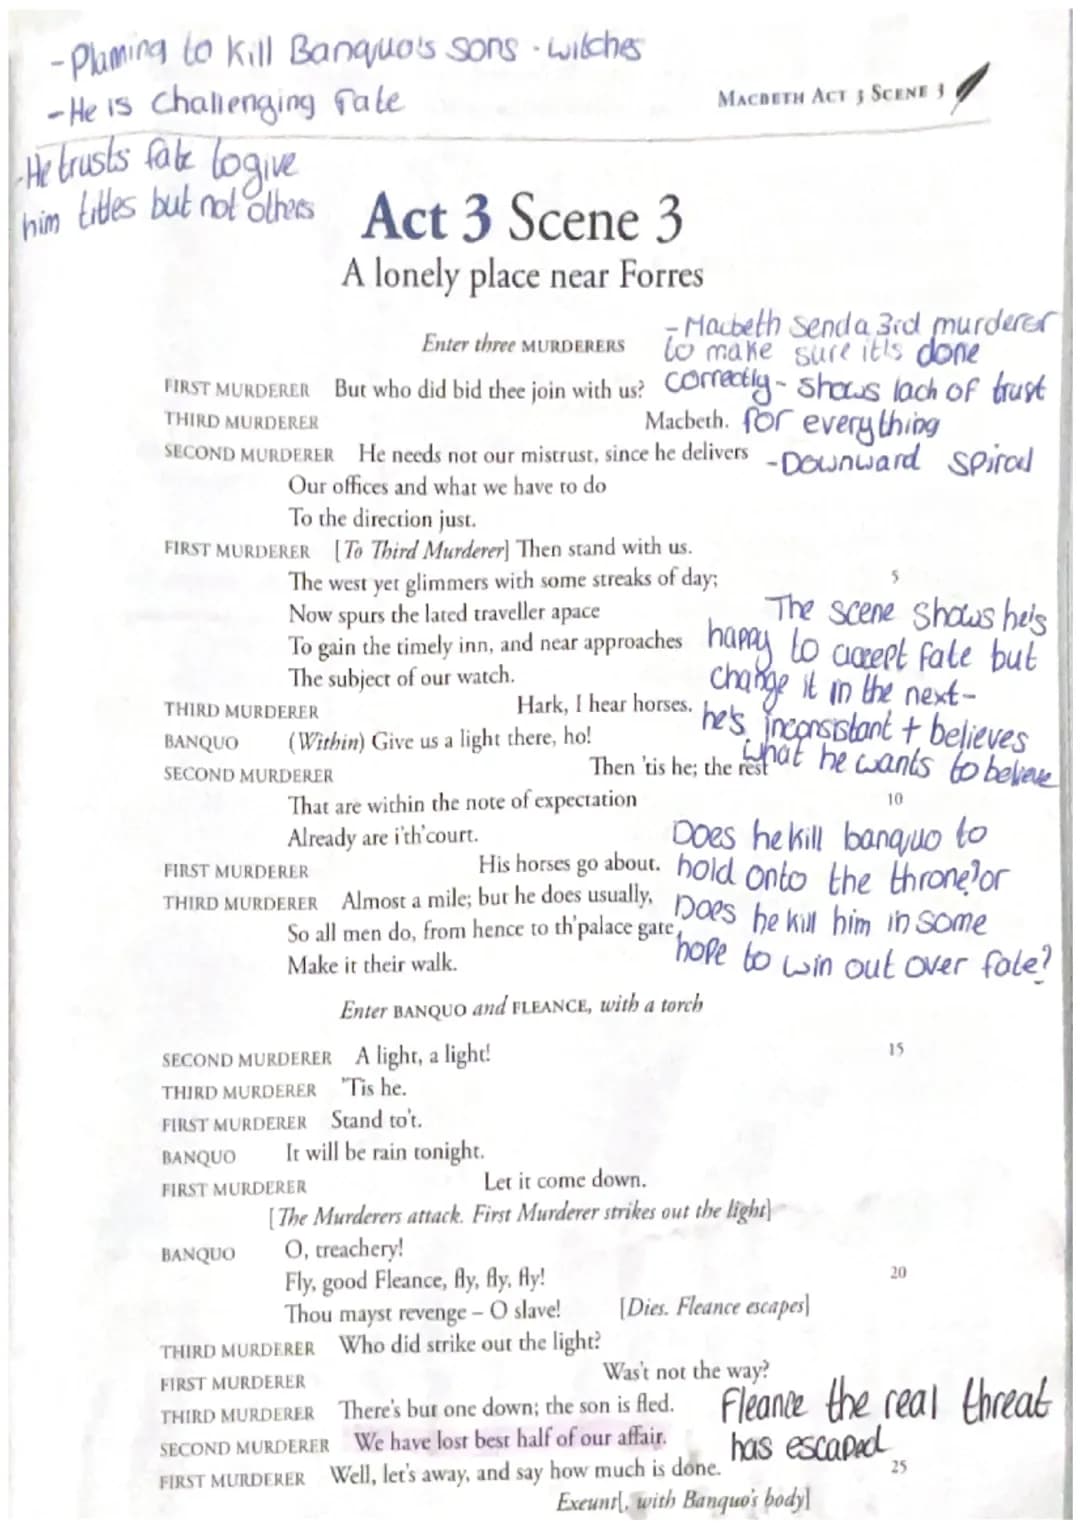 -Planning to kill Banquo's sons - witches
-He is challenging fate
MACBETH ACT 3 SCENE 3
-He trusts fate to give
him titles but not others
Act 3 Scene 3
A lonely place near Forres
-Macbeth send a 3rd murderer
Enter three MURDERERS
to make sure it's done
FIRST MURDERER But who did bid thee join with us?
correctly - shows lack of trust
THIRD MURDERER Macbeth.
for everything
SECOND MURDERER He needs not our mistrust, since he delivers
-Downward spiral
Our offices and what we have to do
To the direction just.
FIRST MURDERER [To Third Murderer] Then stand with us.
The west yet glimmers with some streaks of day; 5
Now spurs the lated traveller apace
The scene shows he's
To gain the timely inn, and near approaches
happy to accept fate but
The subject of our watch.
change it in the next-
THIRD MURDERER Hark, I hear horses.
he's inconsistant + believes
BANQUO (Within) Give us a light there, ho!
what he wants to believe
SECOND MURDERER Then 'tis he; the rest
That are within the note of expectation 10
Already are i'th'court.
Does he kill banquo to
FIRST MURDERER His horses go about.
hold onto the throne? or
THIRD MURDERER Almost a mile; but he does usually,
Does he kill him in some
So all men do, from hence to th'palace gate,
hope to win out over fate?
Make it their walk.
Enter BANQUO and FLEANCE, with a torch
SECOND MURDERER A light, a light! 15
THIRD MURDERER 'Tis he.
FIRST MURDERER Stand to't.
BANQUO It will be rain tonight.
FIRST MURDERER Let it come down.
[The Murderers attack. First Murderer strikes out the light]
BANQUO O, treachery!
Fly, good Fleance, fly, fly, fly! 20
Thou mayst revenge – O slave! [Dies. Fleance escapes]
THIRD MURDERER Who did strike out the light?
FIRST MURDERER Was't not the way?
THIRD MURDERER There's but one down; the son is fled.
Fleance the real threat
SECOND MURDERER We have lost best half of our affair.
has escaped
FIRST MURDERER Well, let's away, and say how much is done. 25
Exeunt[, with Banquo's body]